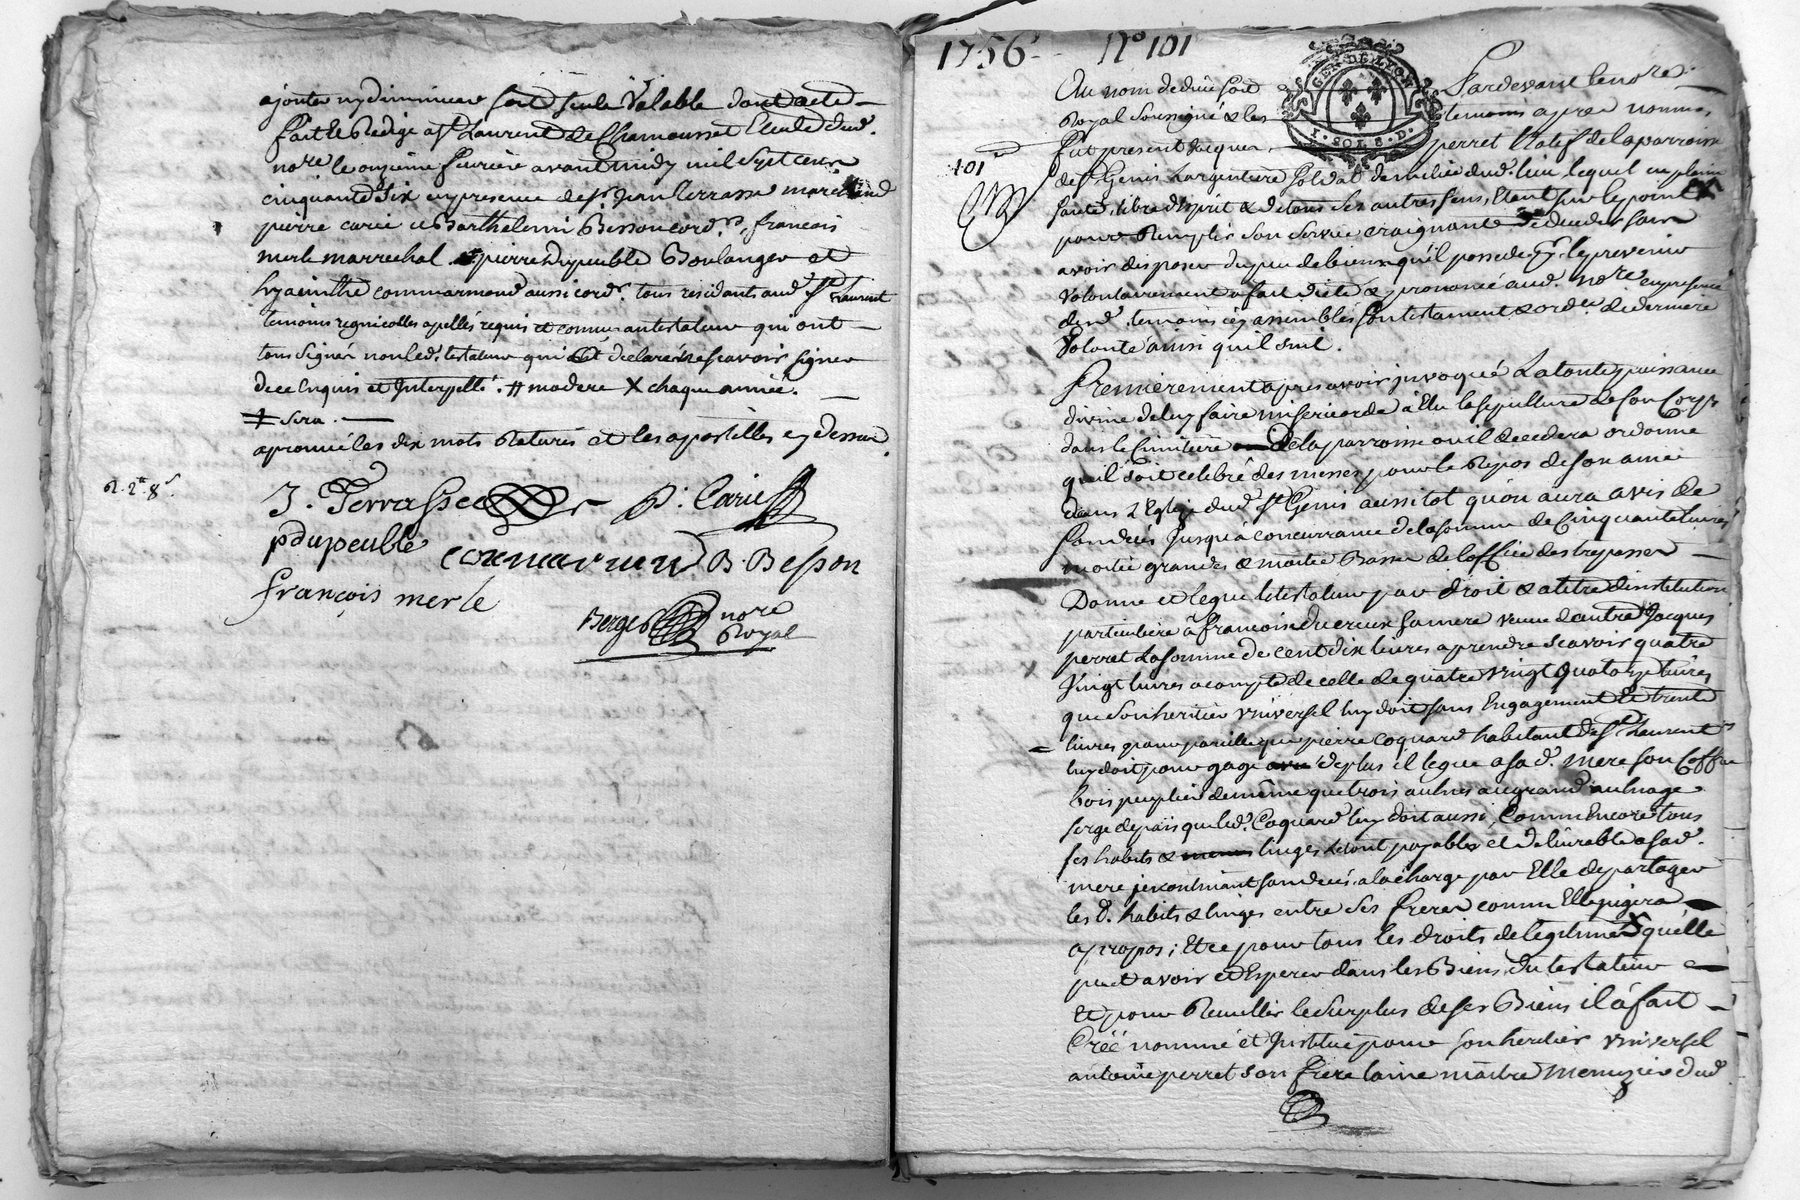 ajouter ny diminuer soit seule valable dont acte
fait et redigé a st Laurent de Chamousset Etude dud.
nore le onzieme fevrier avant midy mil sept cens
cinquante six en presence de sr Jean terrasse marchand
pierre carié et Barthelemi Besson cord.rs, francois
merle marrechal pierre dupeuble Boulanger et
hyacinthe commarmond aussi cord.r tous residants aud. st Laurent
temoins regnicolles apellés requis et connus au testateur qui ont
tous signés non led. testateur qui a declaré ne scavoir signer
de ce Enquis et Interpellé. # modere X chaque année.
‡ sera.
aprouvé les dix mots raturés et les apostilles cy dessus
R. 2# 8s.
J. Terrasse P. Carié
pdupeuble commarmond B. Besson
françois merle
Berger nore
Royal
1756 No 101
GEN. DE LYON
1. SOL 8. D.
Au nom de dieu soit Pardevant le nore
Royal soussigné & les temoins apres nommés
101
fut present Jacques perret Natif de la parroisse
de st Genis Largentiere soldat de milice dud. lieu lequel en pleine
santé, libre d'esprit & de tous ses autres sens, Etant sur le point
pour Remplir son service craignant de deceder sans
avoir disposer du peu de biens qu'il possede, le prevenir
volontairement a fait dicté & prononcé aud. Nore en presence
desd. temoins icy assemblés son testament & ord.ce de derniere
volonté ainsi quil suit.
Premierement apres avoir invoqué La toute puissance
divine de luy faire misericorde à Elu la sepulture de son Corps
dans le Cimitiere de la parroisse ou il decedera ordonne
qu'il soit celebré des messes pour le Repos de son ame
dans L'Eglise dud. st Genis aussitot qu'on aura avis de
son deces Jusqu'à concurrance de la somme de Cinquante livres
moitié grandes & moitié Basses de l'office des trepasses
Donne et legue le testateur par droit & a titre d'institution
particuliere à francoise ducreux sa mere veuve d'autre Jacques
perret La somme de cent dix livres a prendre scavoir quatre
Vingt livres a compte de celle de quatre vingt quatorze livres
que son heritier universel luy doit sans Engagement Et trente
livres pour pareille que pierre coquard habitant de st Laurent
luy doit pour gage de plus il legue a sa d. mere son Coffre
bois peuplier de même que trois aulnes au grand aulnage
serge de païs que led. Coquard luy doit aussi, Comm' Encore tous
ses habits & linges le tout payable et delivrable a sad.
mere incontinant son deces, a la charge par Elle de partager
les d. habits & linges entre ses freres comm' Elle jugera
apropos; Et ce pour tous les droits de legitime X qu'elle
peut avoir et Esperer dans les Biens du testateur
Et pour Recuillir le Surplus de ses Biens il à fait
Créé nommé et Institué pour son heritier universel
antoine perret son frere lainé maitre Menuzier dud